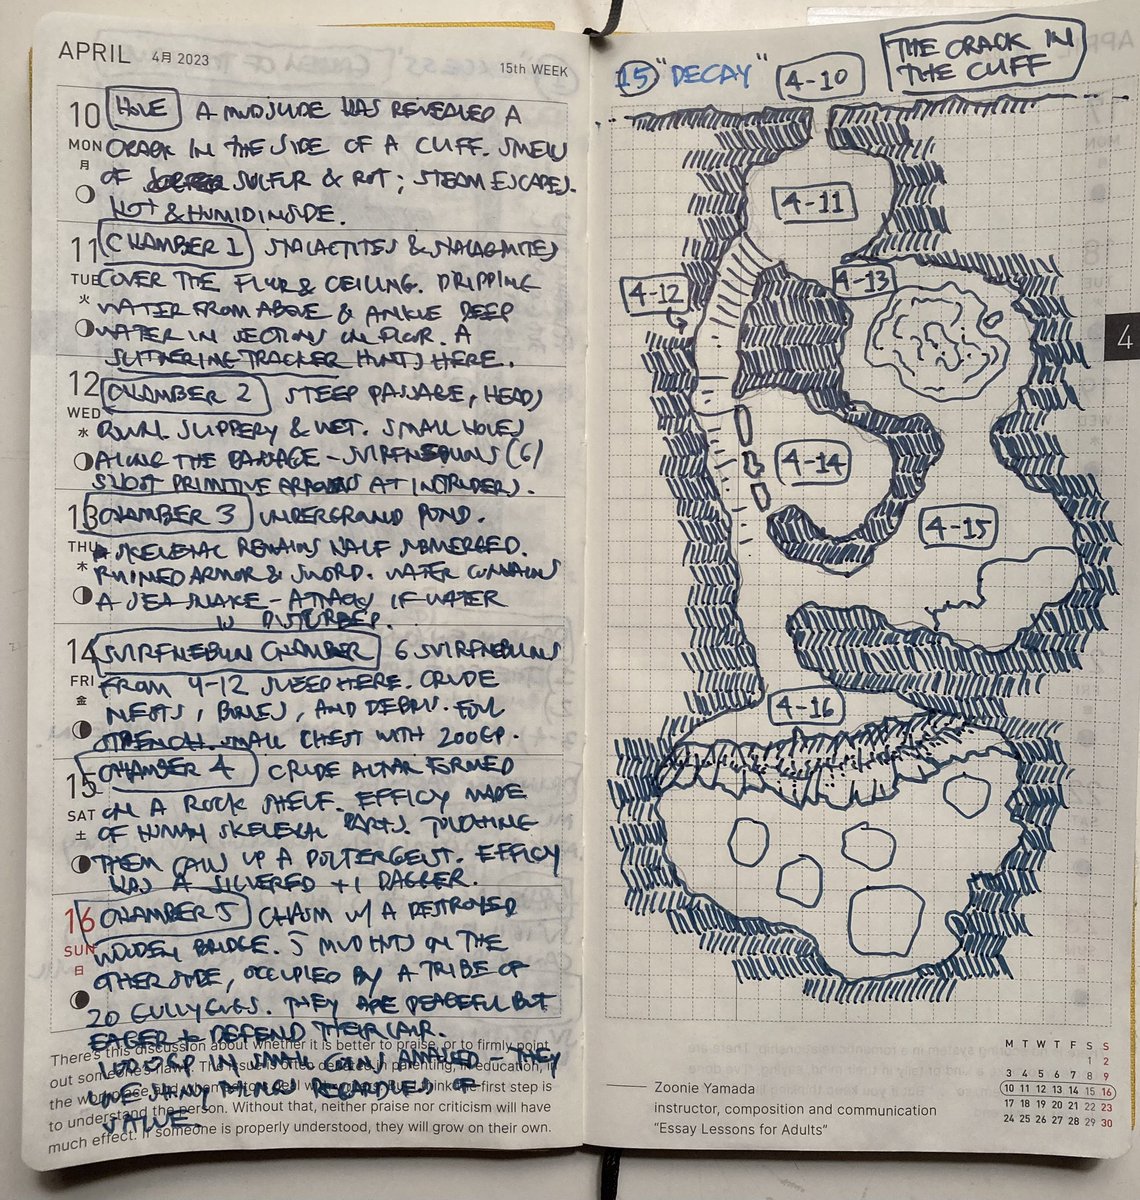 APRIL 4月 2023
15th WEEK
10 MON 月
HOLE A MUDSLIDE HAS REVEALED A
CRACK IN THE SIDE OF A CLIFF. SMELL
OF SULFUR & ROT; STEAM ESCAPES.
HOT & HUMID INSIDE.
11 TUE 火
CHAMBER 1 STALACTITES & STALAGMITES
COVER THE FLOOR & CEILING. DRIPPING
WATER FROM ABOVE & ANKLE DEEP
WATER IN SECTIONS ON FLOOR. A
SLITHERING TRACKER HUNTS HERE.
12 WED 水
CHAMBER 2 STEEP PASSAGE, HEADS
DOWN. SLIPPERY & WET. SMALL HOLES
ALONG THE PASSAGE - SVIRFNEBLINS (6)
SHOOT PRIMITIVE ARROWS AT INTRUDERS.
13 THU 木
CHAMBER 3 UNDERGRAND POND.
SKELETAL REMAINS HALF SUBMERGED.
RUINED ARMOR & SWORD. WATER CONTAINS
A SEA SNAKE - ATTACKS IF WATER
IS DISTURBED.
14 FRI 金
SVIRFNEBLIN CHAMBER 6 SVIRFNEBLINS
FROM 4-12 SLEEP HERE. CRUDE
NESTS, BONES, AND DEBRIS. FOUL
STRENCH. SMALL CHEST WITH 200GP.
15 SAT 土
CHAMBER 4 CRUDE ALTAR FORMED
ON A ROCK SHELF. EFFIGY MADE
OF HUMAN SKELETAL PARTS. TOUCHING
THEM CALLS UP A POLTERGEIST. EFFIGY
HAS A SILVERED +1 DAGGER.
16 SUN 日
CHAMBER 5 CHASM W/ A DESTROYED
WOODEN BRIDGE. 5 MUD HUTS ON THE
OTHER SIDE, OCCUPIED BY A TRIBE OF
20 GULLYGUGS. THEY ARE PEACEFUL BUT
EAGER TO DEFEND THEIR LAIR.
IN SMALL COINS AMASSED - THEY
LOVE SHINY THINGS REGARDLESS OF
VALUE.
There's this discussion about whether it is better to praise, or to firmly point
out someone's flaws. The issue is often debated in parenting, in education, in
the workplace and I think the first step is
to understand the person. Without that, neither praise nor criticism will have
much effect. If someone is properly understood, they will grow on their own.
15 "DECAY" 4-10 THE CRACK IN
THE CLIFF
4-11
4-12
4-13
4-14
4-15
4-16
4
Zoonie Yamada
instructor, composition and communication
"Essay Lessons for Adults"
M T W T F S S
1 2
3 4 5 6 7 8 9
10 11 12 13 14 15 16
17 18 19 20 21 22 23
24 25 26 27 28 29 30